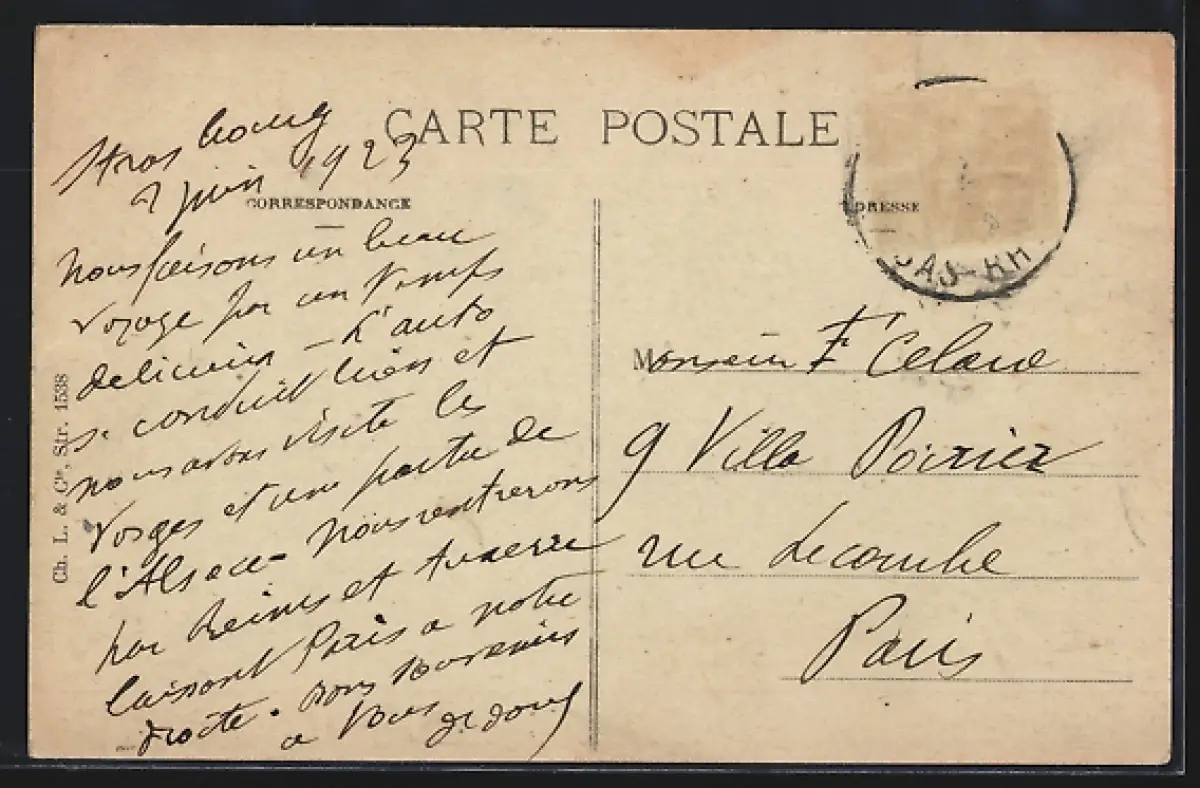 CARTE POSTALE
CORRESPONDANCE
ADRESSE
Strasbourg
2 juin 1923
Nous faisons un beau
voyage par un temps
delicieux – L'auto
se conduit bien et
nous avons visité les
Vosges et une partie de
l'Alsace – Nous rentrerons
par Reims et Auxerre
laissant Paris a notre
droite. Bons souvenirs
a Vous
Monsieur F
9 Villa Poirier
rue Lecourbe
Paris
Ch. L. & Cie, Str. 1538